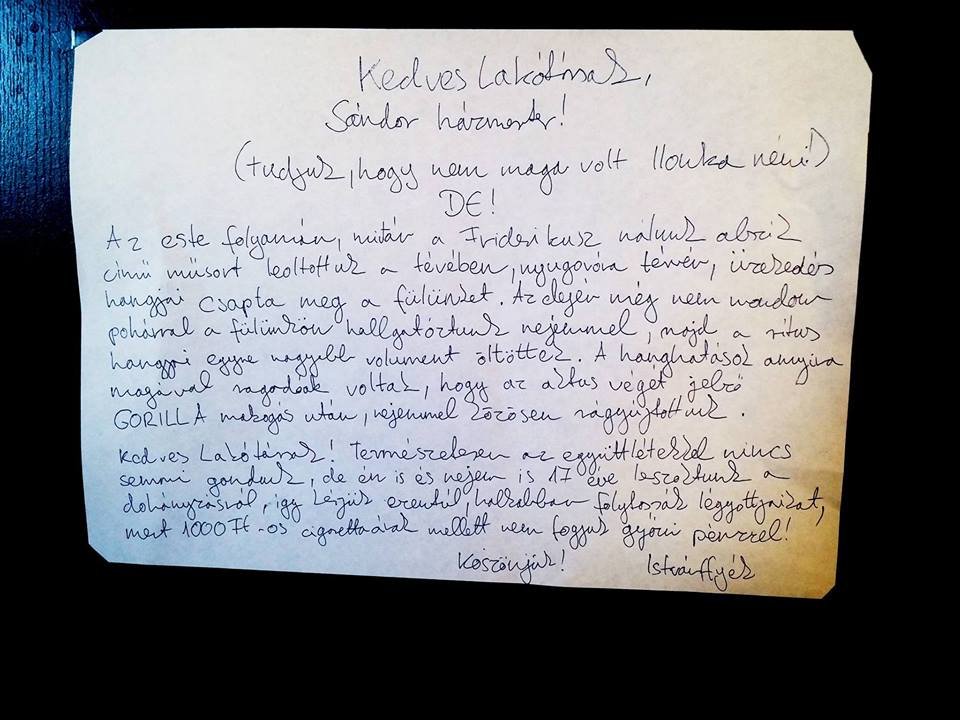 Kedves Lakótársak,
Sándor házmester!
(tudjuk, hogy nem maga volt Ilonka néni!)
DE!
Az este folyamán, miután a Friderikusz nálunk
című műsort leoltottuk a tévében, nyugovóra térvén, üzekedés
hangjai csapta meg a fülünket. Az elején még nem mondom
pohárral a fülünkön hallgatóztunk nejemmel, majd a rítus
hangjai egyre nagyobb volument öltöttek. A hanghatások annyira
magával ragadóak voltak, hogy az aktus végét jelző
GORILLA makogás után, nejemmel közösen rágyújtottunk.
Kedves Lakótársak! Természetesen az együttlétekkel nincs
semmi gondunk, de én is és nejem is 17 éve leszoktunk a
dohányzásról, így kérjük ezentúl, halkabban folytassák légyottjaikat,
mert 1000 Ft-os cigarettaárak mellett nem fogjuk győzni pénzzel!
Köszönjük! Istvánffyék